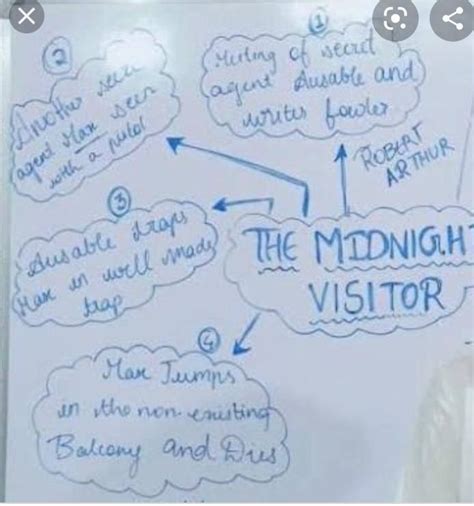 ①
Meeting of secret
agent Ausable and
writer fowler
ROBERT
ARTHUR
②
Another
agent Max seen
with a pistol
③
Ausable traps
Max in well made
trap
THE MIDNIGH
VISITOR
④
Max Jumps
in the non-existing
Balcony and Dies